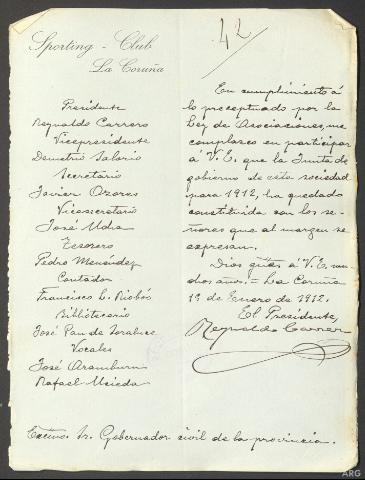 Sporting - Club
La Coruña
42
Presidente
Reynaldo Carrero
Vicepresidente
Demetrio Salorio
Secretario
Javier Ozores
Vicesecretario
José
Tesorero
Pedro Menéndez
Contador
Francisco L. Riobóo
Bibliotecario
José Pan de Soraluce
Vocales
José Aramburu
Rafael
En cumplimiento á
lo preceptuado por la
Ley de Asociaciones, me
complazco en participar
á V.E. que la Junta de
gobierno de esta sociedad
para 1912, ha quedado
constituida con los se-
ñores que al margen se
expresan.
Dios gūe á V.E. mu-
chos años. = La Coruña
19 de Enero de 1912.
El Presidente,
Reynaldo Carrero
Excmo. Sr. Gobernador civil de la provincia.
ARG